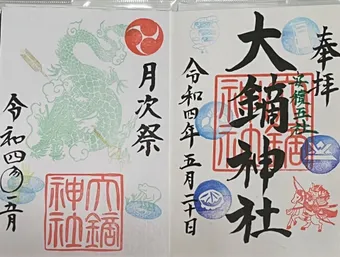 奉拝
大鏑神社
令和四年五月二十日
月次祭
令和四年五月
大鏑
神社